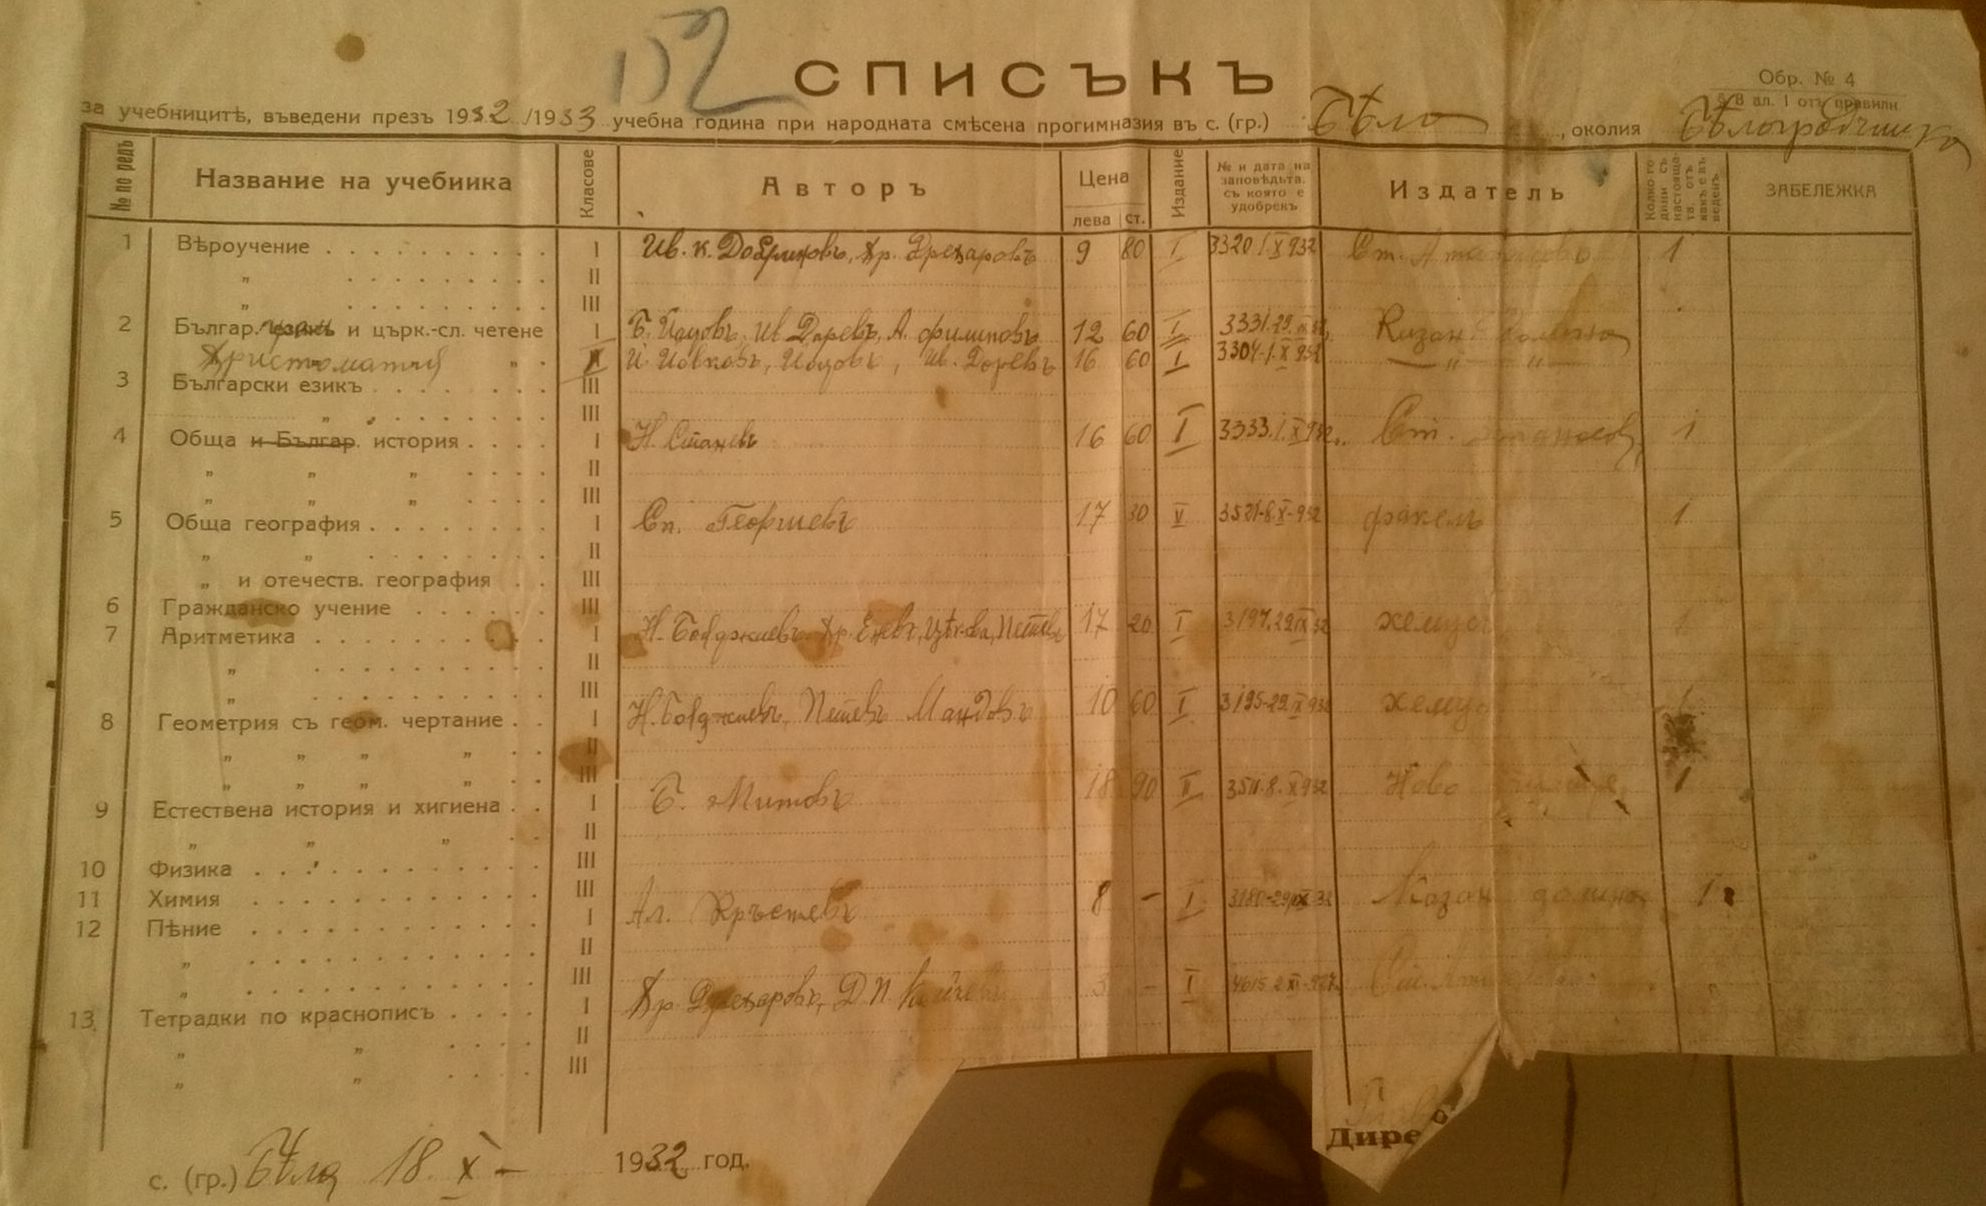 152
СПИСЪКЪ
Обр. № 4
§ 8 ал. 1 отъ правилн.
за учебницитѣ, въведени презъ 1932/1933 учебна година при народната смѣсена прогимназия въ с. (гр.) Бѣла, околия Бѣлоградчишка
№ по редъ Название на учебника Класове Авторъ Цена лева ст. Издание № и дата на заповѣдьта, съ която е удобрекъ Издатель Колко години съ настоящата отъ какъ е въведенъ ЗАБЕЛЕЖКА
1 Вѣроучение I Ив. К. Добриновъ, Хр. Дрехаровъ 9 80 I 3320 I X 932 Ст. Атанасовъ 1
„ II
„ III
2 Българ. езикъ и църк.-сл. четене I Б. Йоцовъ, Ив. Доревъ, А. Филиповъ 12 60 I 3331.29.IX 32 Казан. долина
Христоматия „ II Й. Йовковъ, Йоцовъ, Ив. Доревъ 16 60 I 3304-1.X 932 — " — " —
3 Български езикъ III
„ III
4 Обща и Българ. история I Н. Станевъ 16 60 I 3333.1.X 932 Ст. Атанасовъ 1
„ „ „ II
„ „ „ III
5 Обща география I Сп. Георгиевъ 17 30 V 3521-8.X-932 Факелъ 1
„ „ II
„ и отечеств. география III
6 Гражданско учение III
7 Аритметика I Н. Бояджиевъ, Хр. Еневъ, Петевъ 17 20 I 3197.29.IX 32 Хемусъ 1
„ II
„ III
8 Геометрия съ геом. чертание I Н. Бояджиевъ, Петевъ Мандовъ 10 60 I 3195-29.IX 932 Хемусъ 1
„ „ „ „ II
„ „ „ „ III
9 Естествена история и хигиена I Б. Митовъ 18 90 II 3511.8.X 932 Ново 1
„ „ „ II
10 Физика III
11 Химия III
12 Пѣние I Ал. Кръстевъ 8 — I 3180-29.IX 32 Казан. долина 1
„ II
„ III
13 Тетрадки по краснописъ I Хр. Дрехаровъ, Д. П. 3 — I
„ „ II
„ „ III
Дире
с. (гр.) Бѣла 18 X — 1932 год.